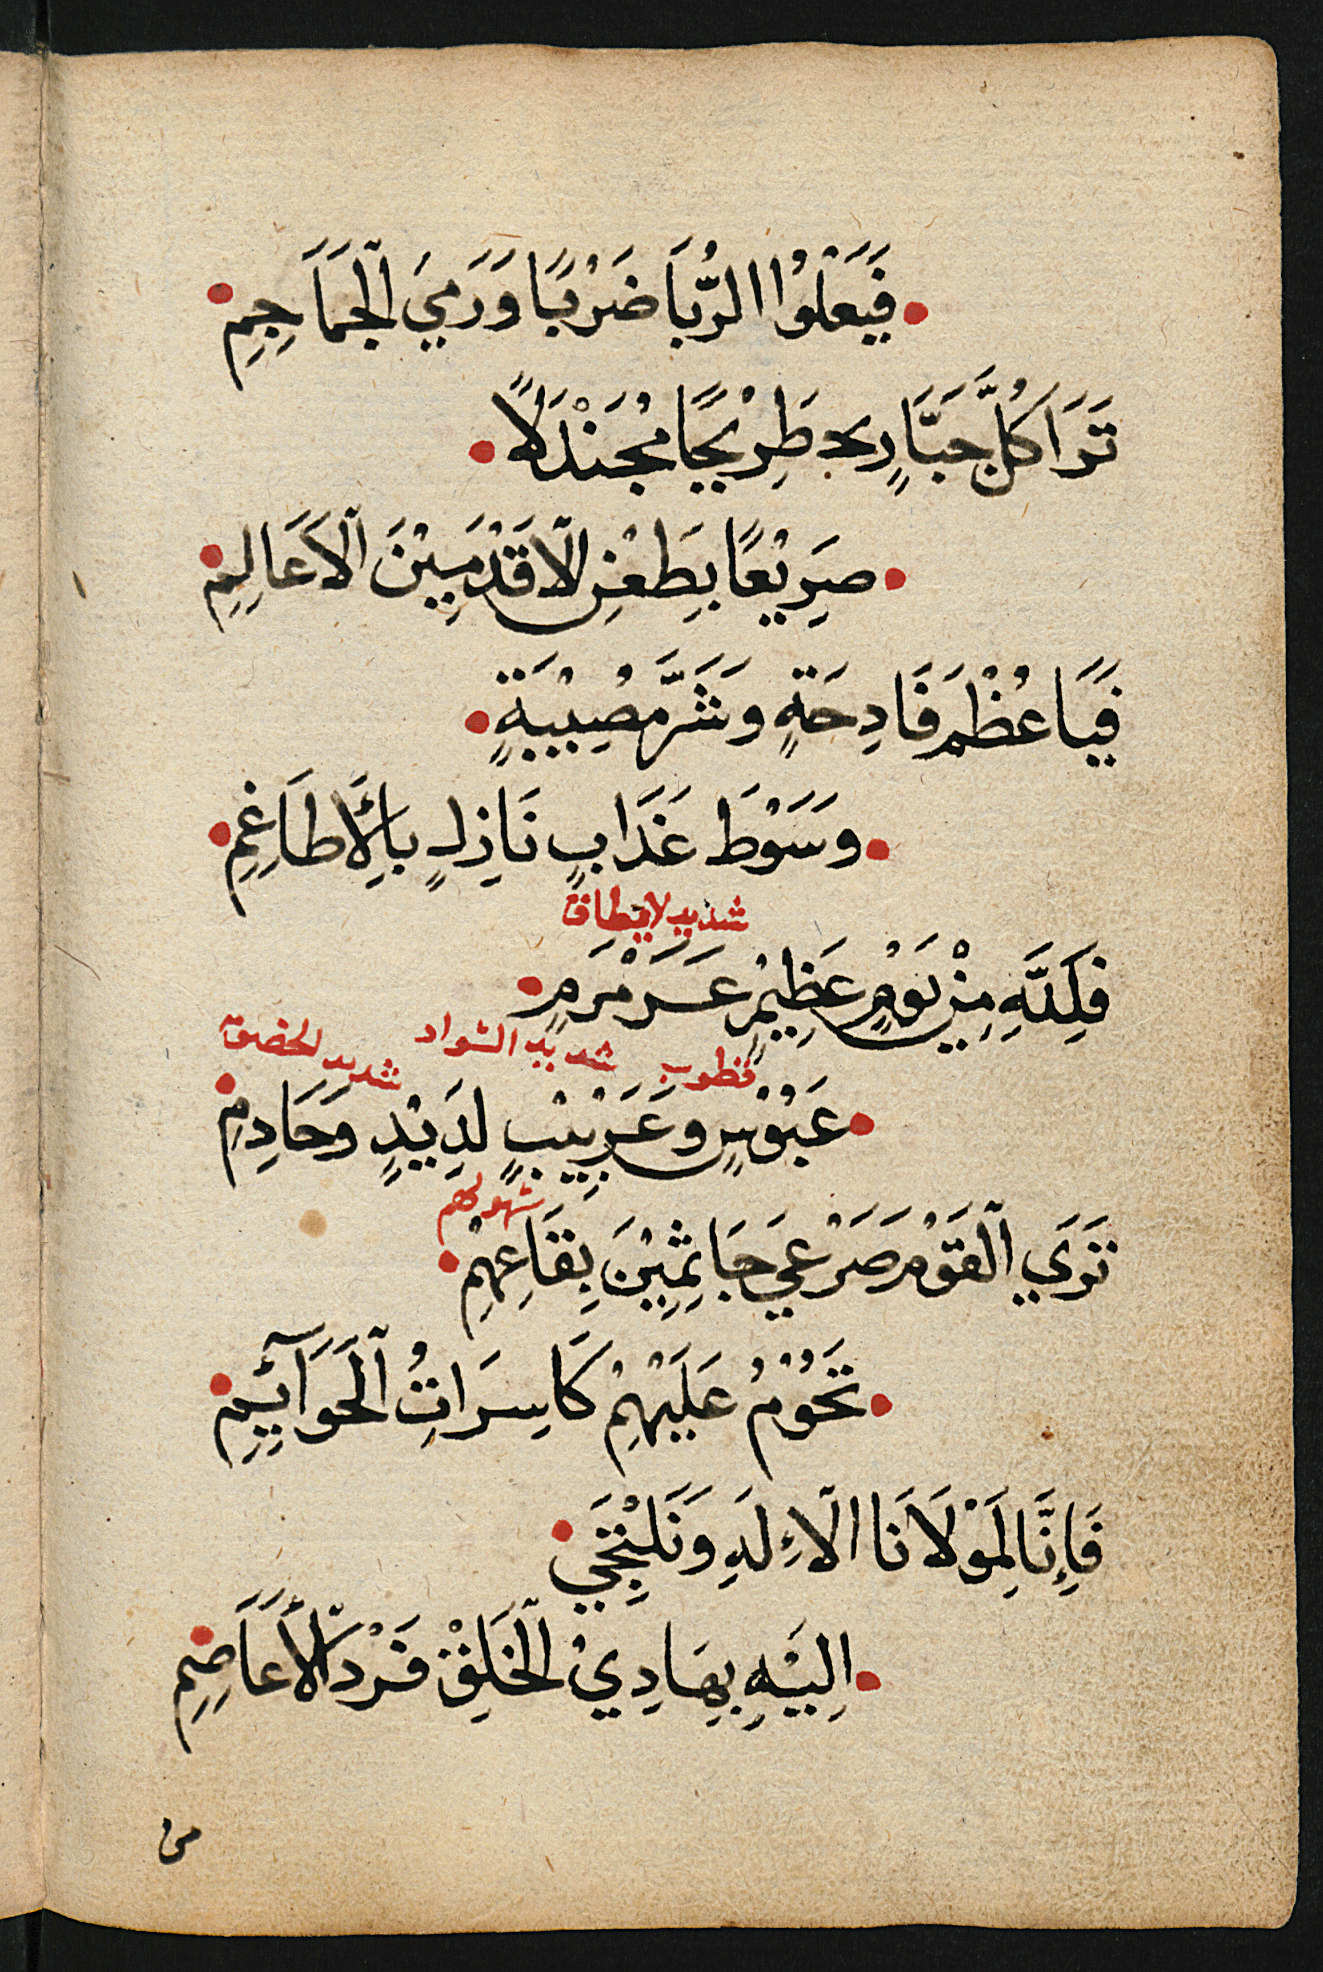 فَيَعْلُوْا الرُّبَا ضَرْبًا وَرَمِيَ الْجَمَاجِمِ
تَرَا كُلَّ جَبَّارٍ طَرِيْحًا مُجَنْدَلًا
صَرِيْعًا بِطَعْنِ الْاَقْدَمِيْنَ الْاَعَالِمِ
فَيَا عُظْمَ فَادِحَةٍ وَشَرَّ مُصِيْبَةٍ
وَسَوْطَ عَذَابٍ نَازِلٍ بِالْأَطَاغِمِ
شديد لايطاق
فَلِلَّهِ مِنْ يَوْمٍ عَظِيْمٍ عَرَمْرَمٍ
قطوب شديد السواد شديد الخضرة
عَبُوْسٍ وَغَرِبِيْبٍ لَدِيْدٍ وَحَادِمِ
تَرَي الْقَوْمَ صَرْعَي جَاثِمِيْنَ بِقَاعِهِمْ
سهولهم
تَحُوْمُ عَلَيْهِمْ كَاسِرَاتُ الْحَوَآئِمِ
فَإِنَّا لِمَوْلَانَا الْاِلَهِ وَنَلْتَجِي
اِلَيْهِ بِهَادِيْ الْخَلْقِ فَرْدَ الْأَعَاضِمِ
من